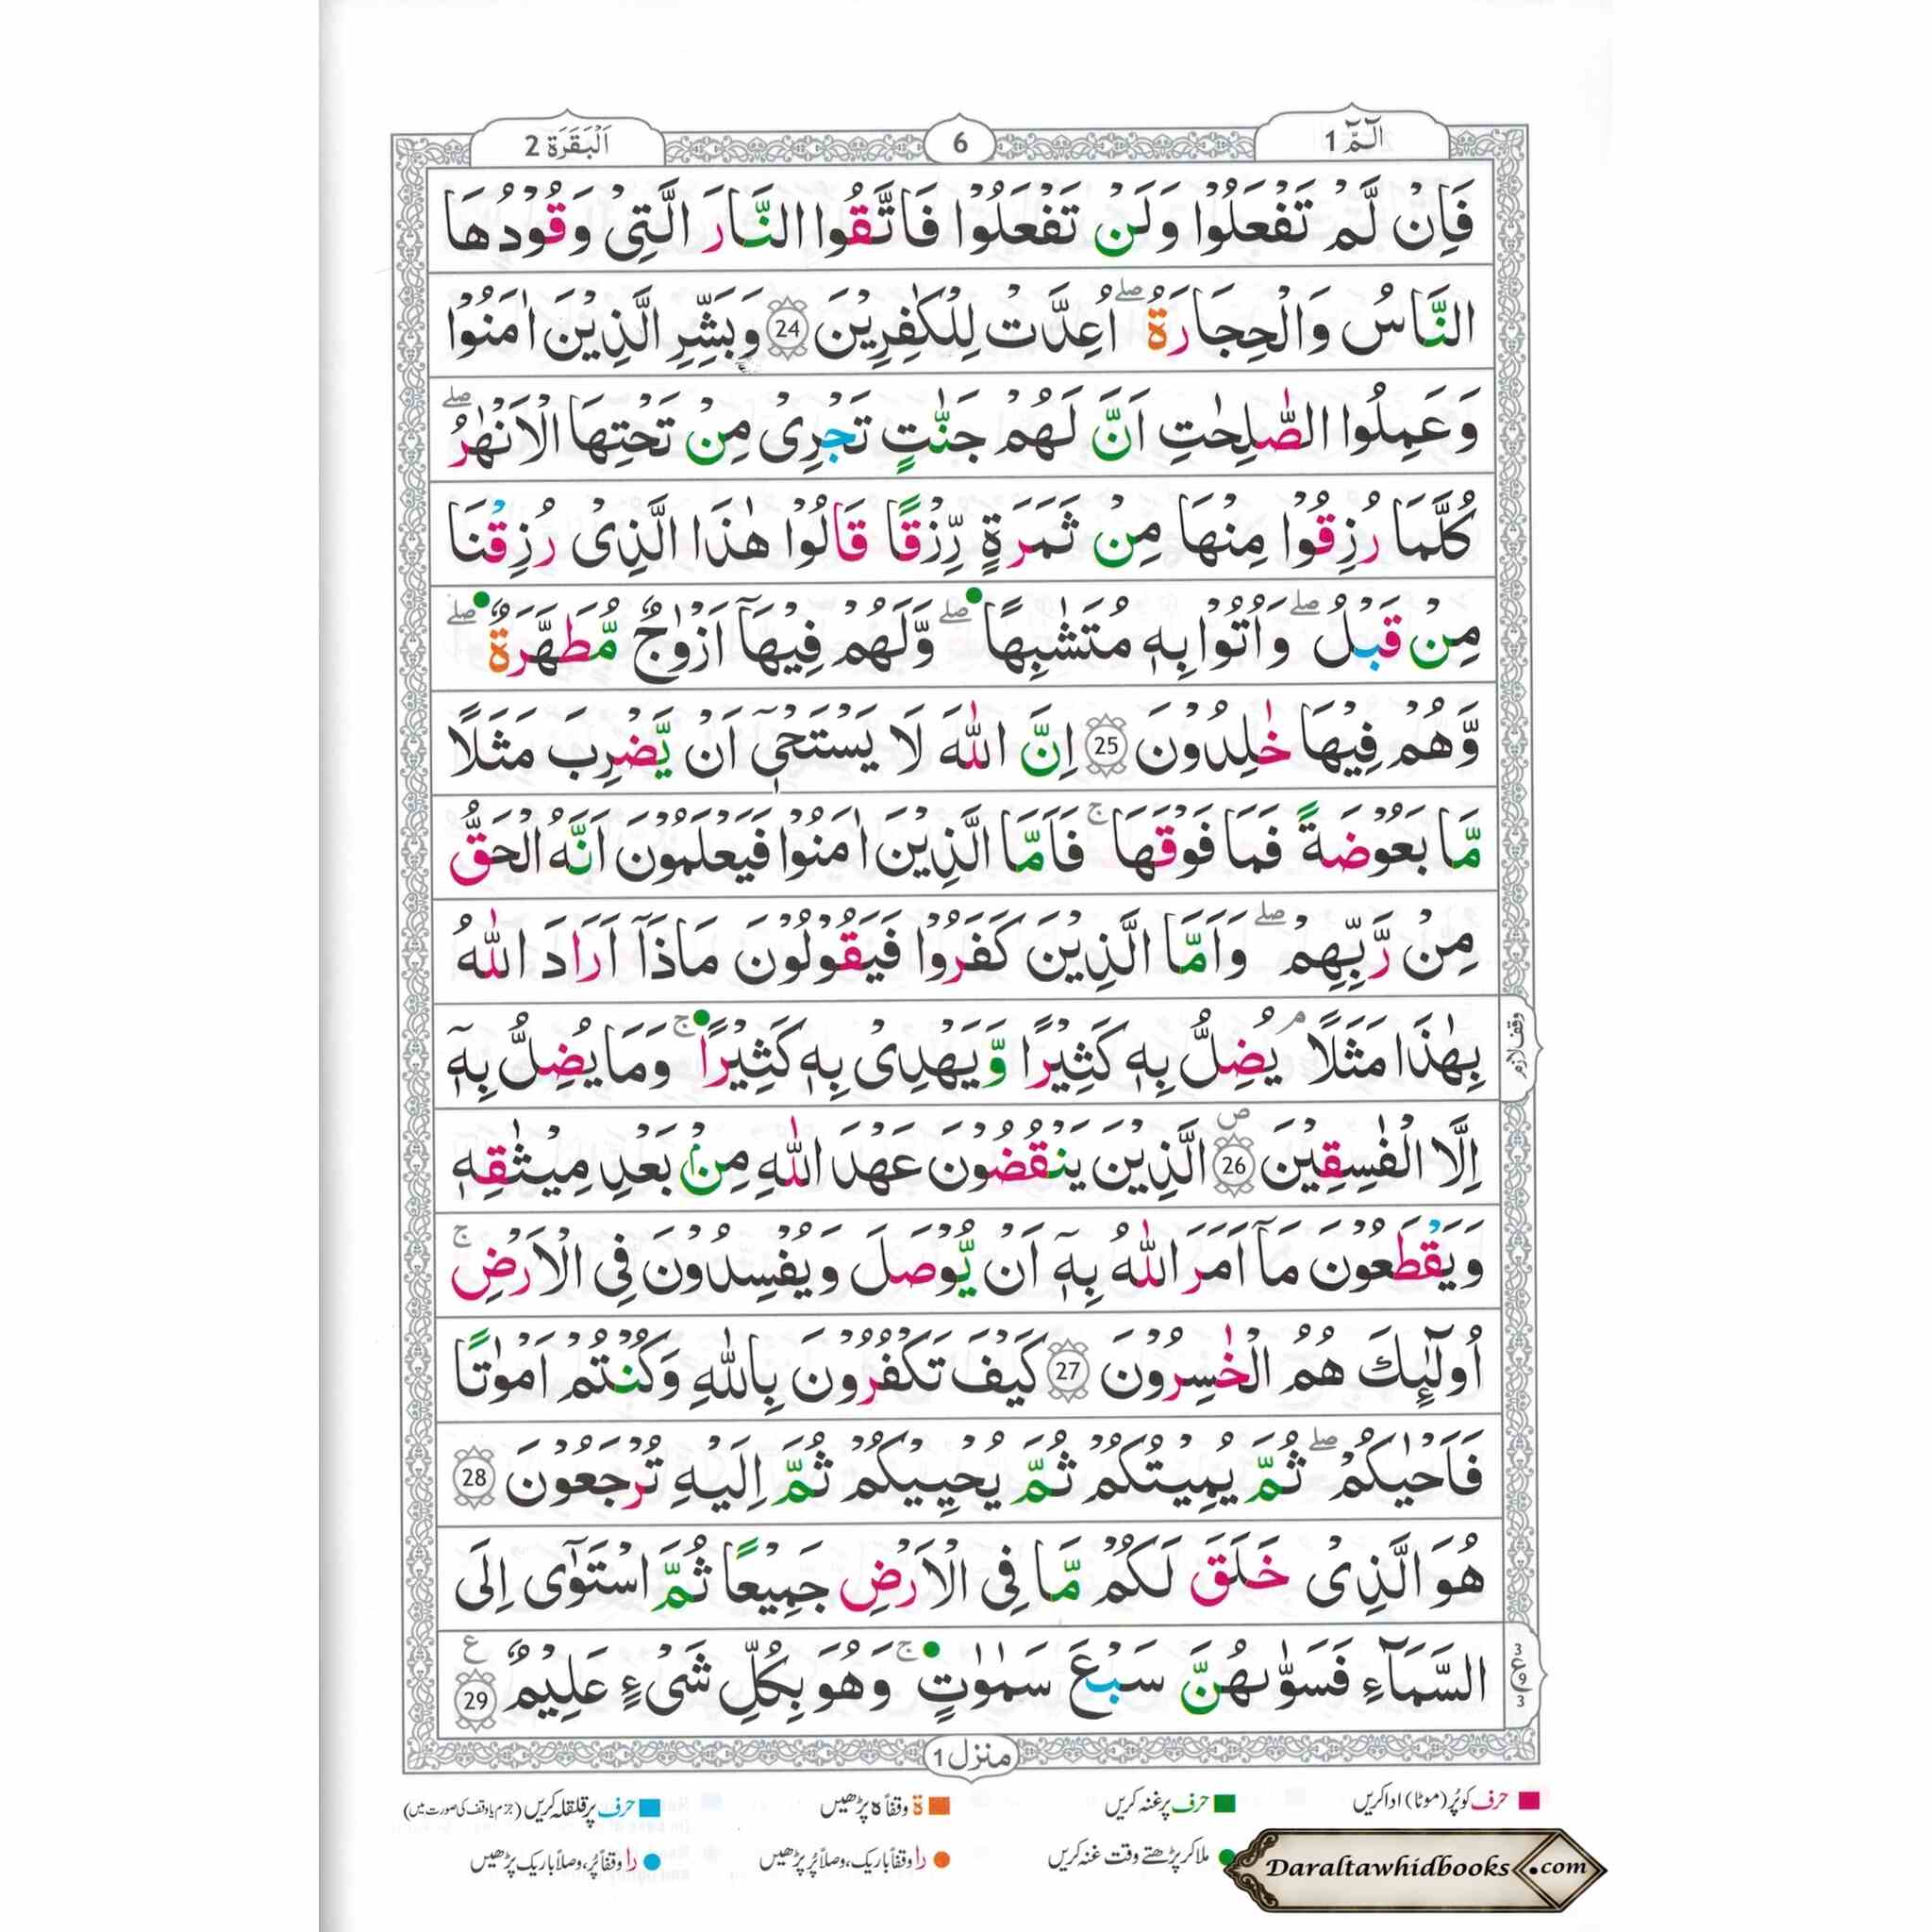 الٓمّٓ 1
6
اَلْبَقَرَة 2
فَاِنْ لَّمْ تَفْعَلُوْا وَلَنْ تَفْعَلُوْا فَاتَّقُوا النَّارَ الَّتِیْ وَقُوْدُهَا
النَّاسُ وَالْحِجَارَةُ ۖۚ اُعِدَّتْ لِلْكٰفِرِیْنَ 24 وَبَشِّرِ الَّذِیْنَ اٰمَنُوْا
وَعَمِلُوا الصّٰلِحٰتِ اَنَّ لَهُمْ جَنّٰتٍ تَجْرِیْ مِنْ تَحْتِهَا الْاَنْهٰرُ ۖ
كُلَّمَا رُزِقُوْا مِنْهَا مِنْ ثَمَرَةٍ رِّزْقًا قَالُوْا هٰذَا الَّذِیْ رُزِقْنَا
مِنْ قَبْلُ ۖ وَاُتُوْا بِهٖ مُتَشٰبِهًا ۖ وَلَهُمْ فِیْهَاۤ اَزْوَاجٌ مُّطَهَّرَةٌ ۖ
وَّهُمْ فِیْهَا خٰلِدُوْنَ 25 اِنَّ اللّٰهَ لَا یَسْتَحْیٖۤ اَنْ یَّضْرِبَ مَثَلًا
مَّا بَعُوْضَةً فَمَا فَوْقَهَا ۚ فَاَمَّا الَّذِیْنَ اٰمَنُوْا فَیَعْلَمُوْنَ اَنَّهُ الْحَقُّ
مِنْ رَّبِّهِمْ ۖ وَاَمَّا الَّذِیْنَ كَفَرُوْا فَیَقُوْلُوْنَ مَاذَاۤ اَرَادَ اللّٰهُ
بِهٰذَا مَثَلًا ۘ یُضِلُّ بِهٖ كَثِیْرًا وَّیَهْدِیْ بِهٖ كَثِیْرًا ۚ وَمَا یُضِلُّ بِهٖۤ
وقف لازم
اِلَّا الْفٰسِقِیْنَ 26 ص الَّذِیْنَ یَنْقُضُوْنَ عَهْدَ اللّٰهِ مِنْۢ بَعْدِ مِیْثٰقِهٖ
وَیَقْطَعُوْنَ مَاۤ اَمَرَ اللّٰهُ بِهٖۤ اَنْ یُّوْصَلَ وَیُفْسِدُوْنَ فِی الْاَرْضِ ۚ
اُولٰٓئِكَ هُمُ الْخٰسِرُوْنَ 27 كَیْفَ تَكْفُرُوْنَ بِاللّٰهِ وَكُنْتُمْ اَمْوٰتًا
فَاَحْیٰكُمْ ۖ ثُمَّ یُمِیْتُكُمْ ثُمَّ یُحْیِیْكُمْ ثُمَّ اِلَیْهِ تُرْجَعُوْنَ 28
هُوَ الَّذِیْ خَلَقَ لَكُمْ مَّا فِی الْاَرْضِ جَمِیْعًا ثُمَّ اسْتَوٰۤی اِلَی
السَّمَآءِ فَسَوّٰىهُنَّ سَبْعَ سَمٰوٰتٍ ۚ وَهُوَ بِكُلِّ شَیْءٍ عَلِیْمٌ 29 ع
3 ع 9 3
منزل 1
حرف کو پُر (موٹا) ادا کریں
حرف پر غنہ کریں
ۃ وقفاً ہ پڑھیں
حرف پر قلقلہ کریں (جزم یا وقف کی صورت میں)
ملا کر پڑھتے وقت غنہ کریں
را وقفاً باریک، وصلاً پُر پڑھیں
را وقفاً پُر، وصلاً باریک پڑھیں
Daraltawhidbooks.com